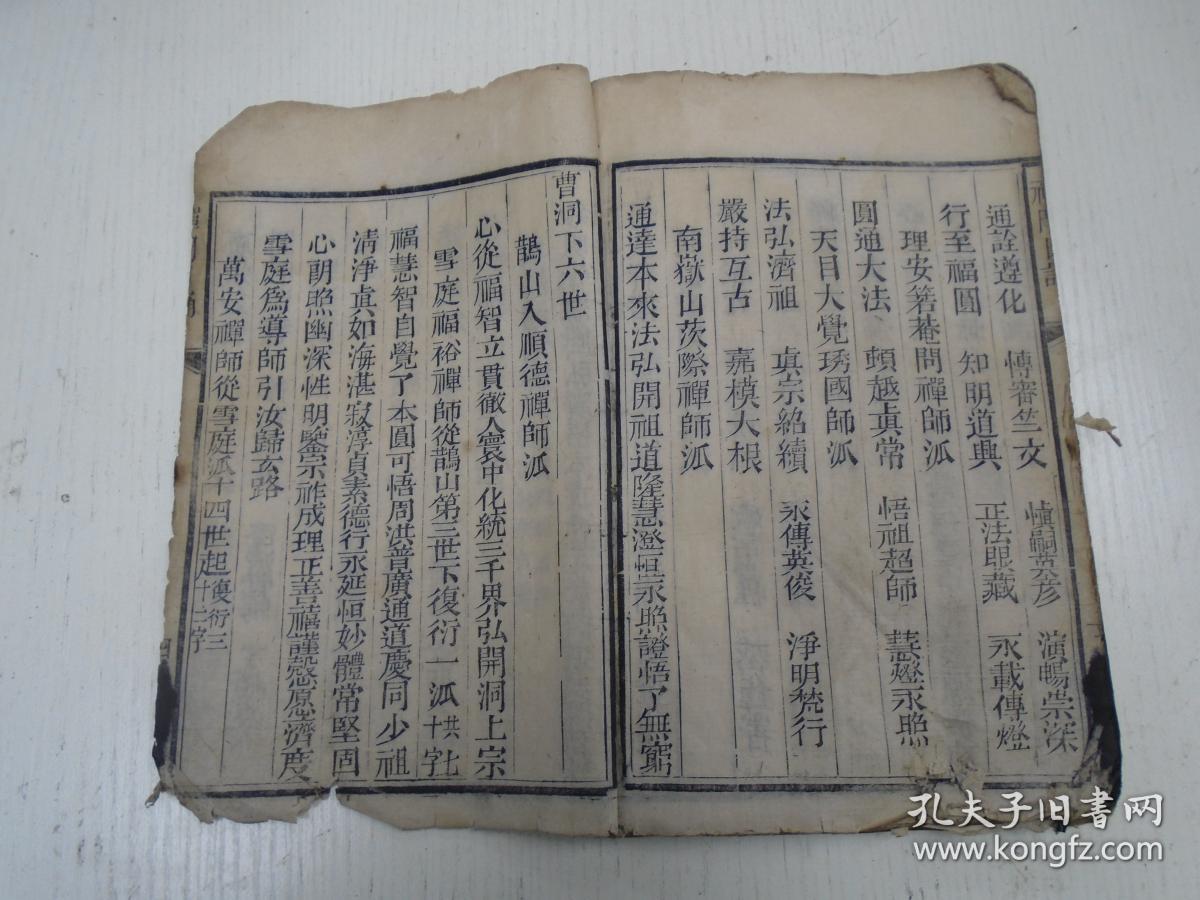 通詮遵化　慱審竺文　愼嗣　彦　演暢崇深
行至福圓　知明道興　正法眼藏　永載傳燈
理安箬菴問禪師泒
圓通大法　頓越眞常　悟祖超師　慧燈永照
天目大覺琇國師泒
法弘濟祖　眞宗紹續　永傳英俊　淨明梵行
嚴持互古　嘉模大根
南嶽山茨際禪師泒
通達本來法弘開祖道隆慧澄恒永照證悟了無窮
曹洞下六世
鵲山入順德禪師泒
心從福智立貫徹人寰中化統三千界弘開洞上宗
雪庭福裕禪師從鵲山第三世下復衍一泒共七十字
福慧智自覺了本圓可悟周洪普廣通道慶同少祖
清淨眞如海湛寂淳貞素德行永延恒妙體常堅固
心朗照幽深性明鑒宗祚成理正善禧謹慤原濟度
雪庭爲導師引汝歸玄路
萬安禪師從雪庭泒十四世起復衍三十二字
孔夫子旧书网
www.kongfz.com